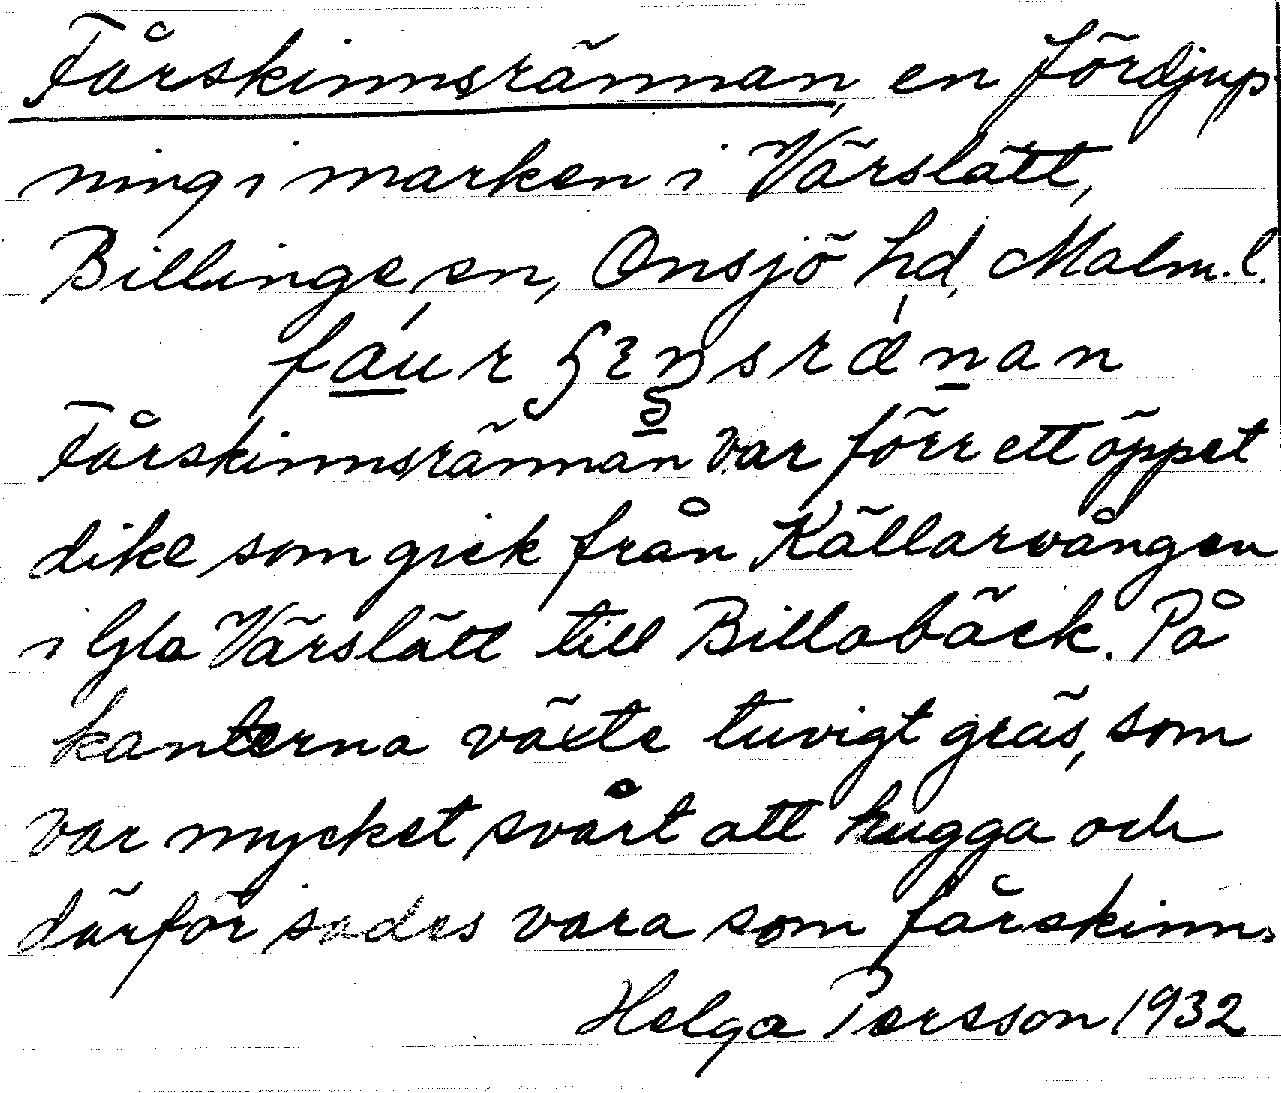 Fårskinnsrännan, en fördjup
ning i marken i Värslätt,
Billinge sn, Onsjö hd, Malm. l.
Fårskinnsrännan var förr ett öppet
dike som gick från Källarvången
i Gla Värslätt till Billabäck. På
kanterna växte tuvigt gräs, som
var mycket svårt att hugga och
därför sades vara som fårskinn.
Helga Persson 1932